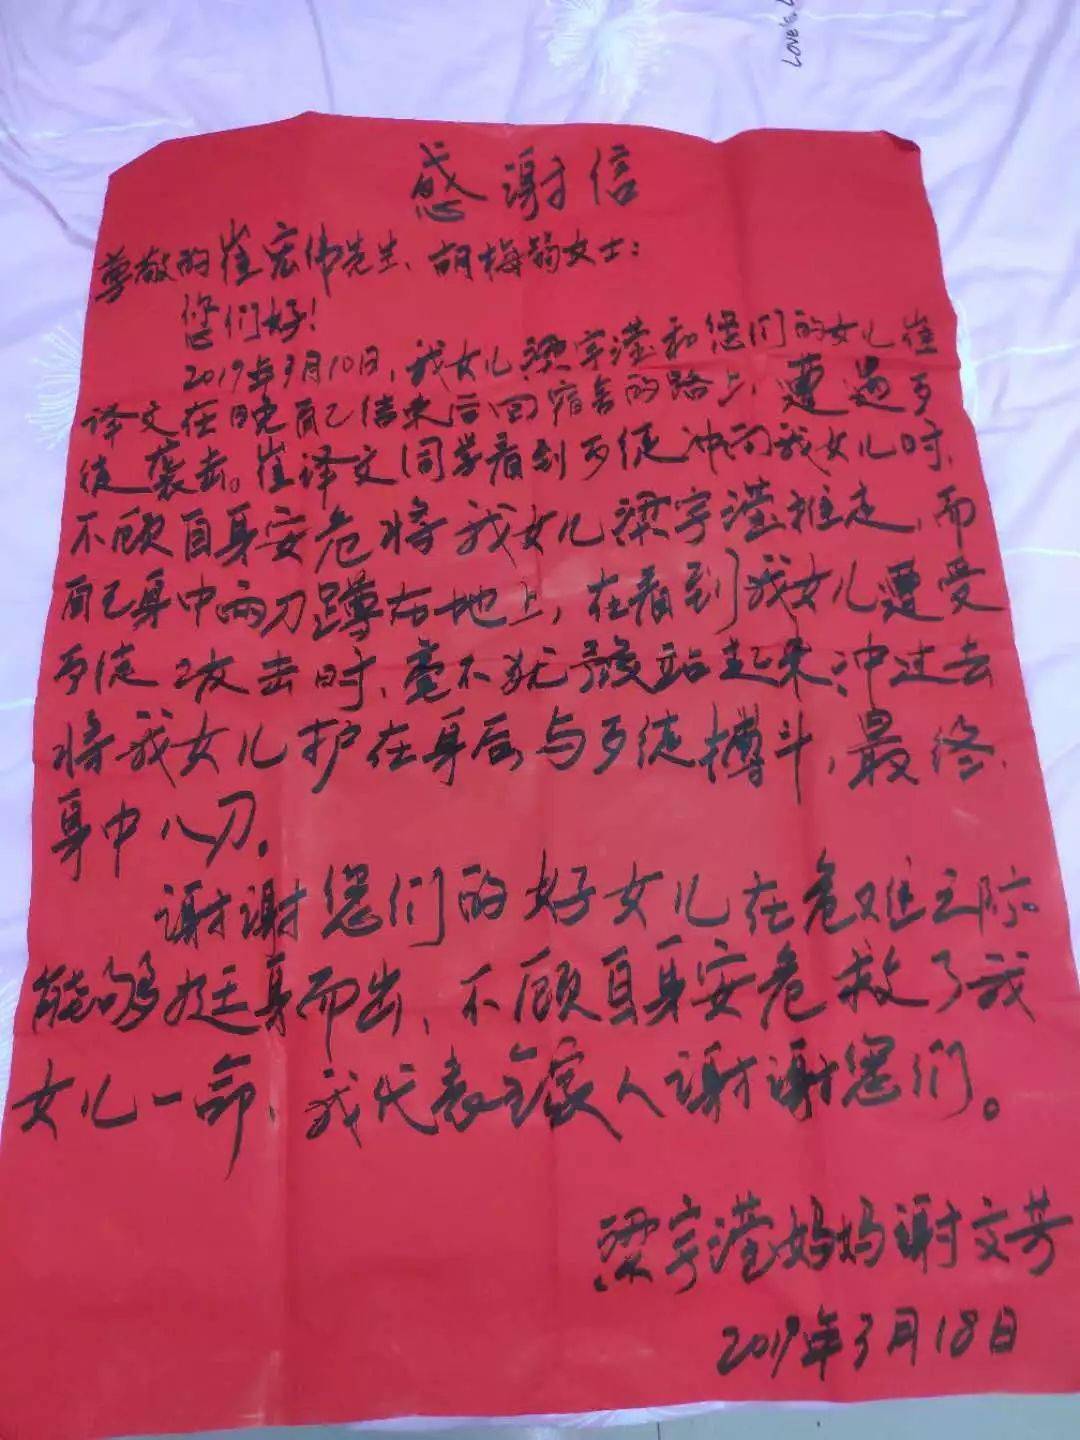 Love's L
感谢信
尊敬的崔宏伟先生、胡梅菊女士：
您们好！
2019年3月10日，我女儿梁宇滢和您们的女儿崔
译文在晚自习结束后回宿舍的路上，遭遇歹
徒袭击。崔译文同学看到歹徒冲向我女儿时，
不顾自身安危将我女儿梁宇滢推走，而
自己身中两刀蹲在地上，在看到我女儿遭受
歹徒攻击时，毫不犹豫站起来冲过去
将我女儿护在身后与歹徒搏斗，最终
身中八刀。
谢谢您们的好女儿在危难之际
能够挺身而出，不顾自身安危救了我
女儿一命，我代表全家人谢谢您们。
梁宇滢妈妈谢文芳
2019年3月18日